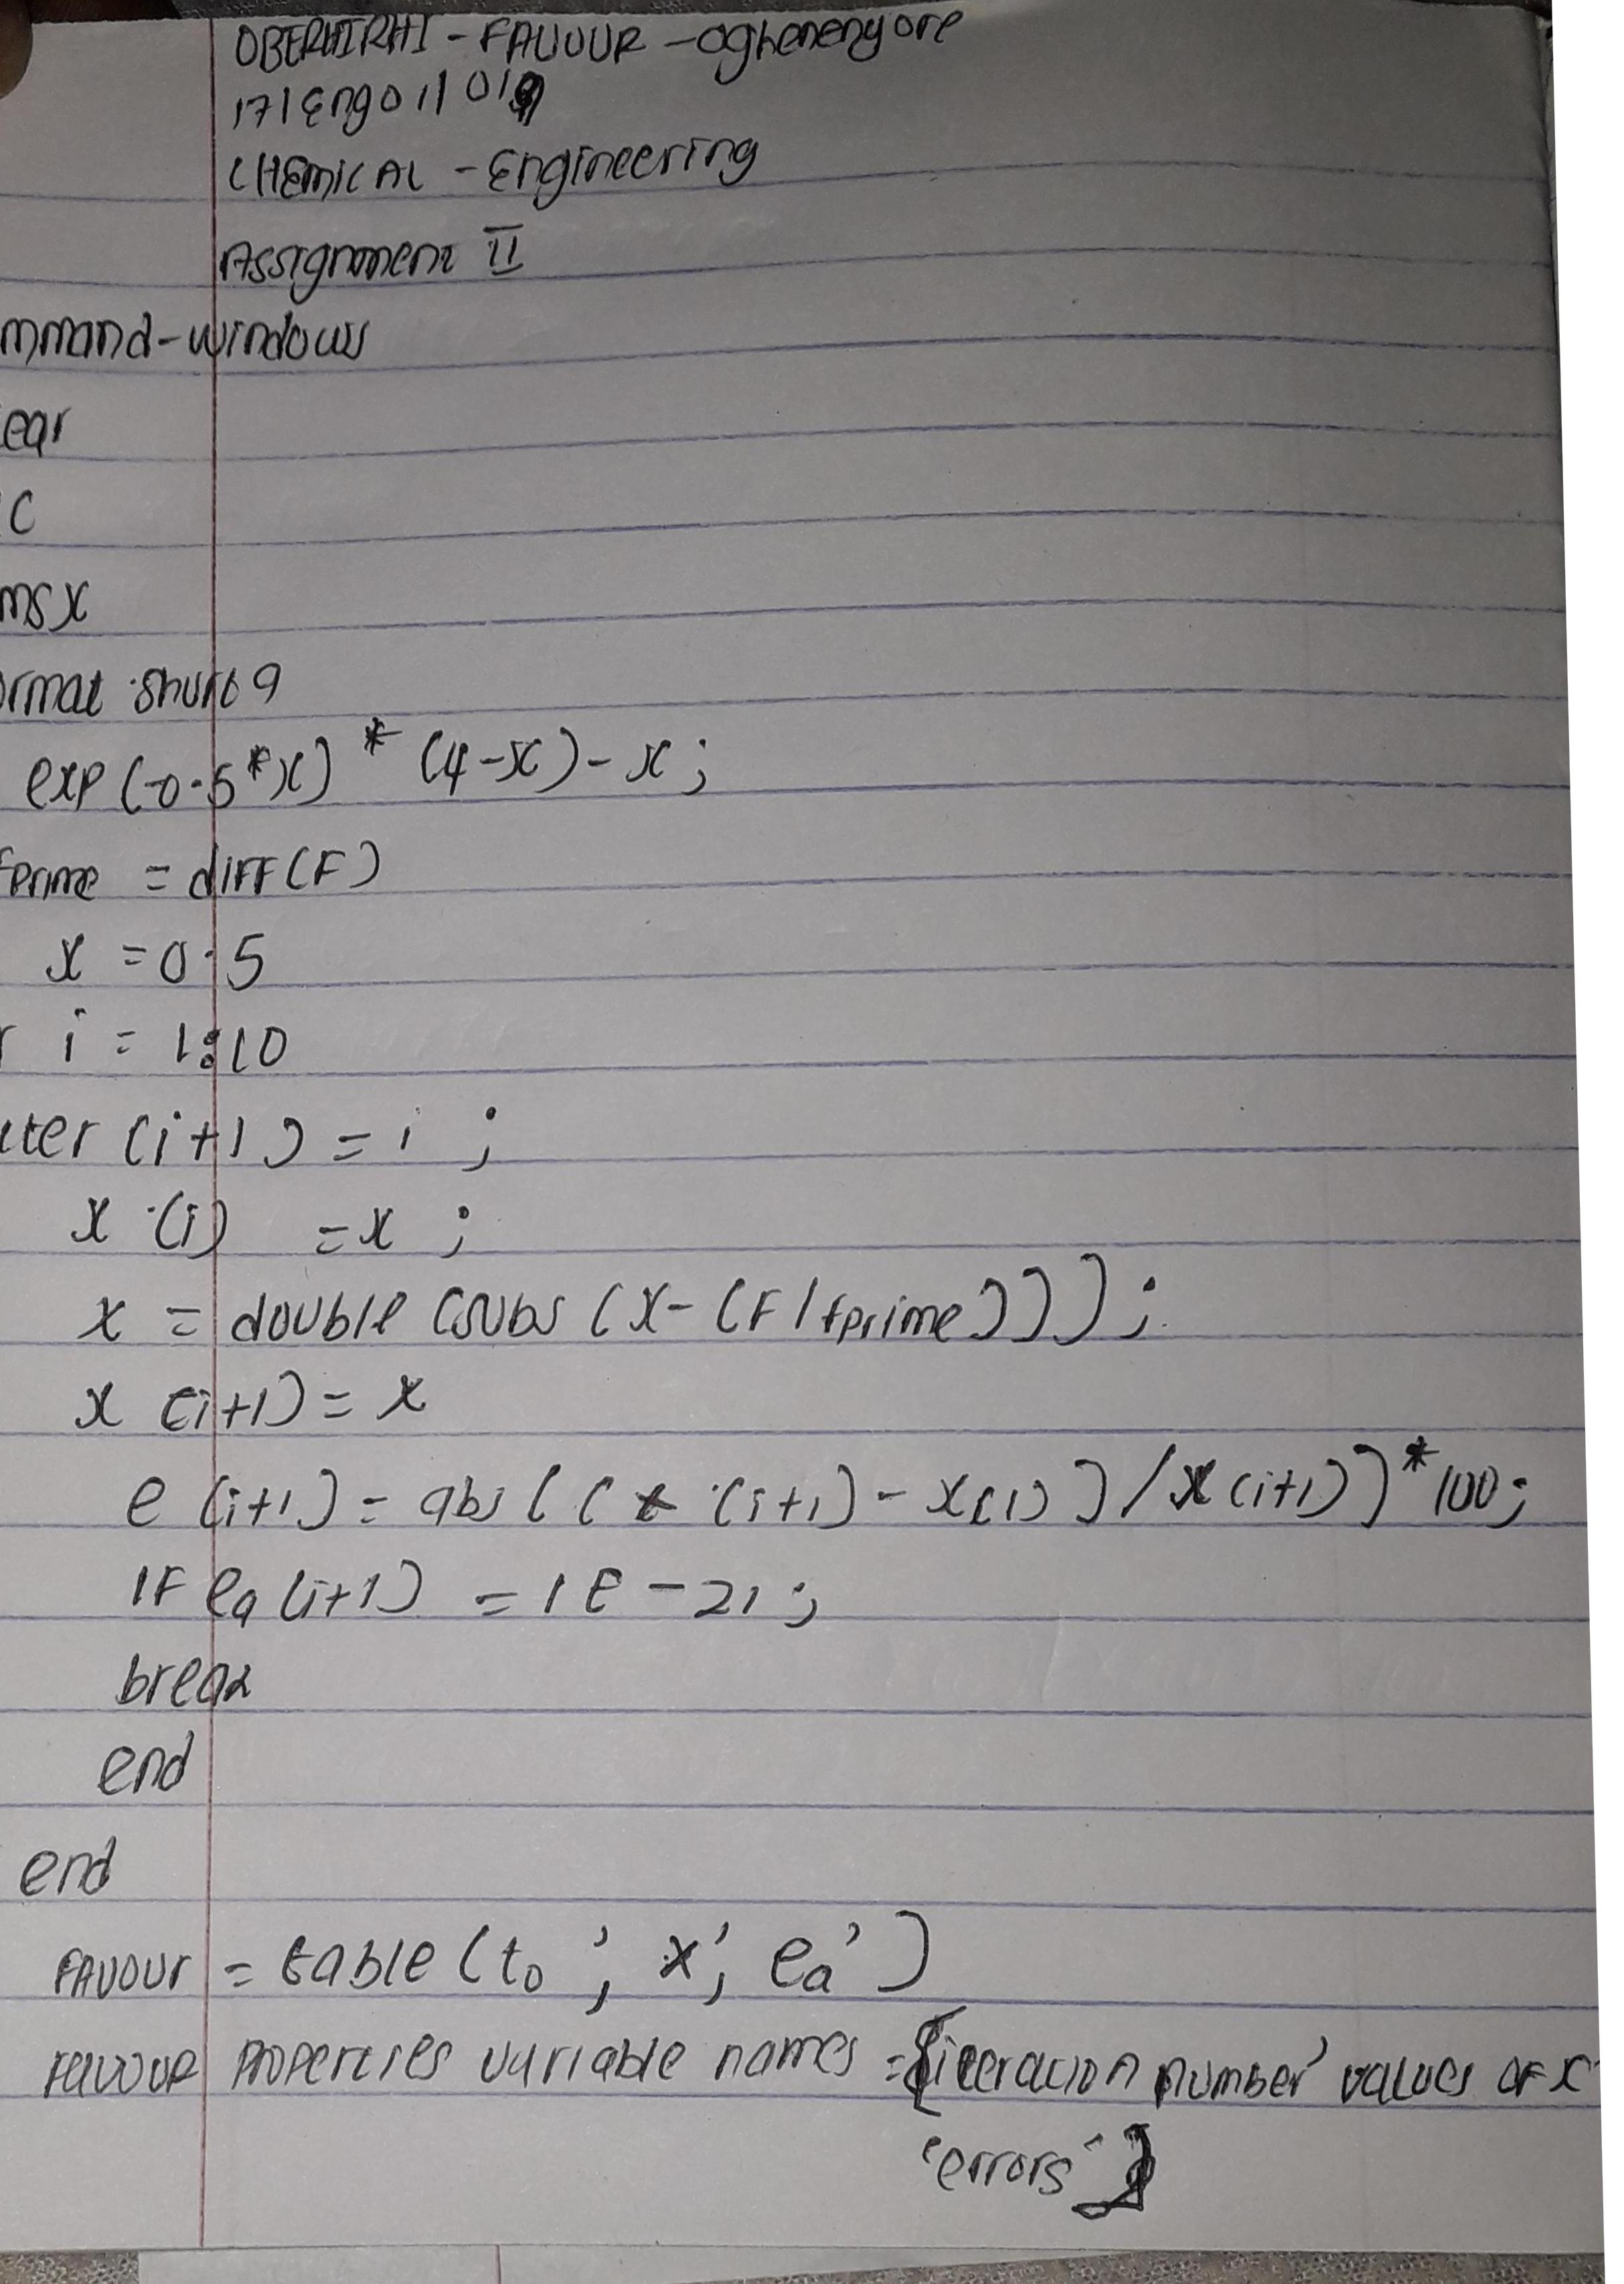 OBERHIRHI - FAVOUR - oghenenyore
17/Eng01/019
CHEMICAL - Engineering
Assignment II
mmand-windows
ear
C
ms x
ormat short g
exp (-0.5*x) * (4-x) - x ;
fprime = diff(F)
x = 0.5
r i = 1:10
iter (i+1) = i ;
x (i) = x ;
x = double (subs (x - (F/fprime))) ;
x (i+1) = x
e (i+1) = abs ( ( x (i+1) - x(i) ) / x (i+1) ) * 100 ;
IF ea (i+1) = 1E - 21 ;
break
end
end
FAVOUR = table ( to ', x', ea' )
FAVOUR properties variable names = {iteration number' values OF x
'errors' }